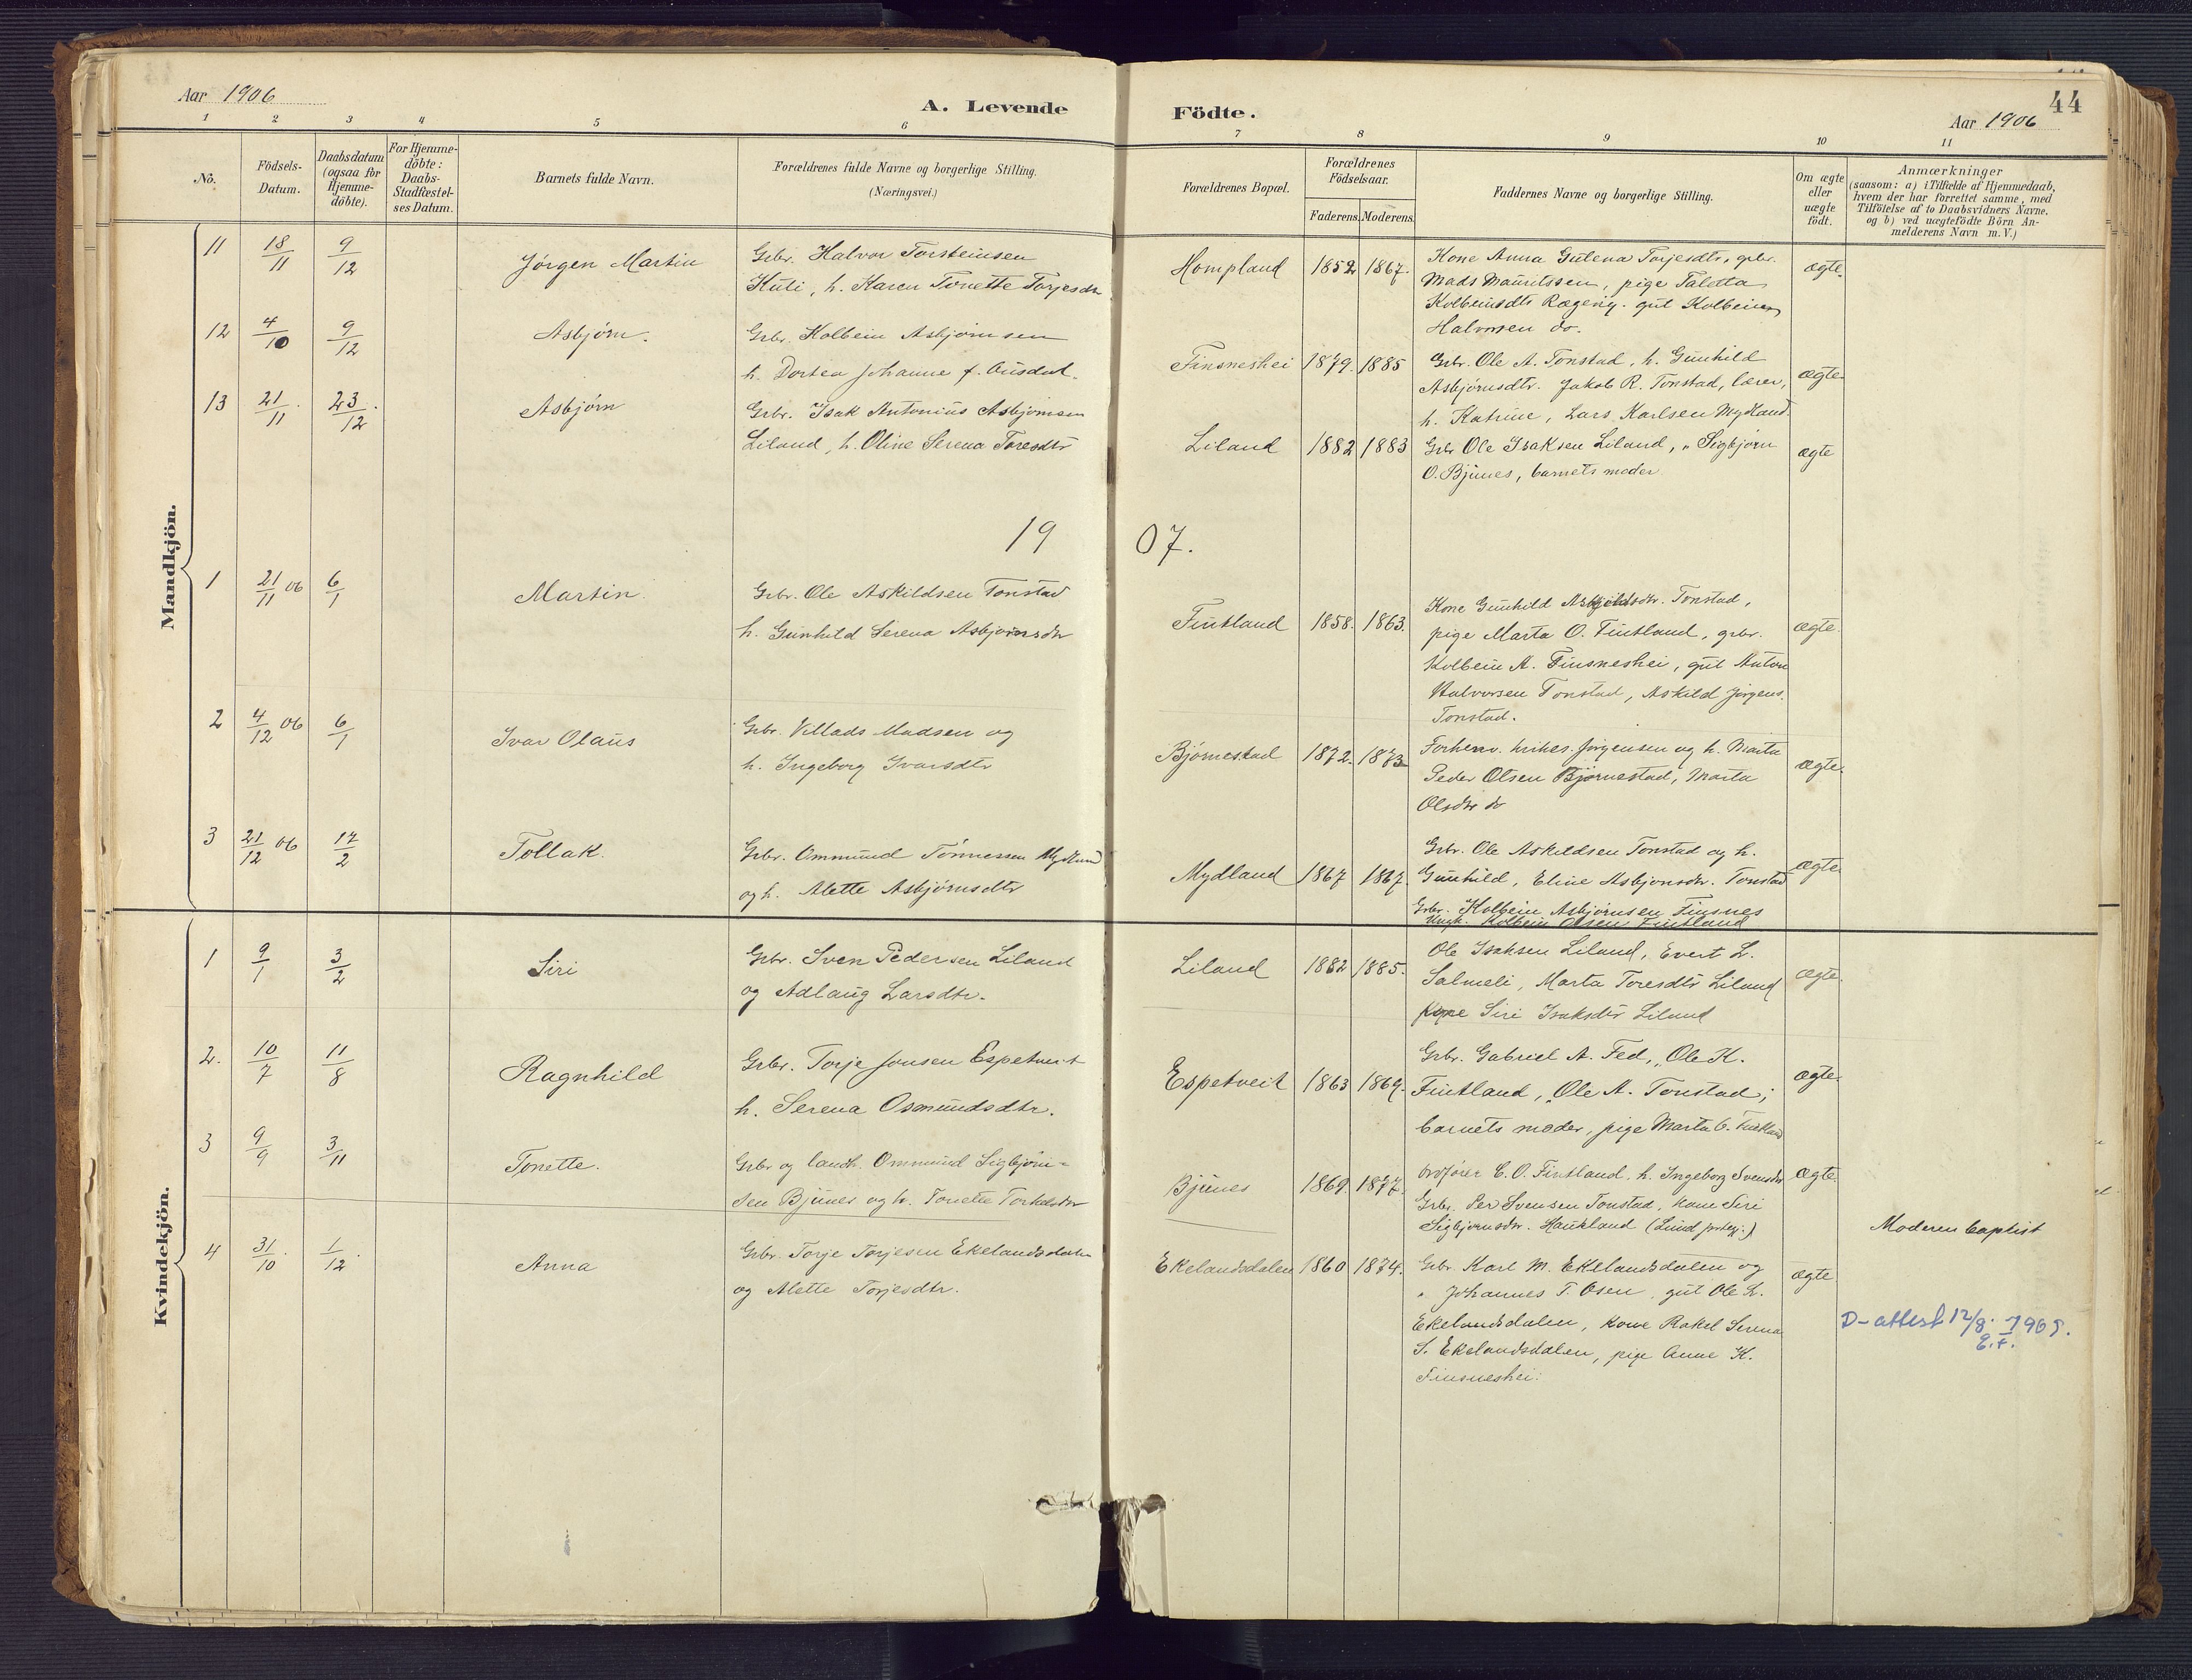 Aar 1906
A. Levende
Födte.
44
Aar 1906
1 2 3 4 5 6 7 8 9 10 11
No.
Födsels-Datum.
Daabsdatum (ogsaa for Hjemme-döbte).
For Hjemme-döbte: Daabs-Stadfæstel-ses Datum.
Barnets fulde Navn.
Forældrenes fulde Navne og borgerlige Stilling.
(Næringsvei.)
Forældrenes Bopæl.
Forældrenes Födselsaar.
Faderens. Moderens.
Faddernes Navne og borgerlige Stilling.
Om ægte eller uægte födt.
Anmærkninger
(saasom: a) i Tilfælde af Hjemmedaab,
hvem der har forrettet samme, med
Tilföielse af to Daabsvidners Navne,
og b) ved uægtefödte Börn An-
melderens Navn m. V.)
Mandkjön.
11 18/11 9/12 Jørgen Martin
Grbr. Halvor Torsteinsen
Kuli, h. Karen Tonette Torjesdtr.
Hompland 1852 1867.
Kone Anna Gulena Torjesdtr, grbr.
Mads Mauritssen, pige Taletta
Kolbeinsdtr Rægevig. gut Kolbein
Halvorsen do.
ægte.
12 4/10 9/12 Asbjørn.
Grbr. Kolbein Asbjørnsen
h. Dortea Johanne f. Ousdal.
Finsneshei 1879. 1885
Grbr. Ole A. Tonstad, h. Gunhild
Asbjørnsdtr. Jakob R. Tonstad, lærer,
h. Katrine, Lars Karlsen Mydland.
ægte.
13 21/11. 23/12. Asbjørn
Grbr. Isak Antonius Asbjørnsen
Liland, h. Oline Serena Toresdtr
Liland 1882 1883
Grbr Ole Isaksen Liland, " Sigbjørn
O. Bjunes, barnets moder.
ægte
1907.
1 21/11 06 6/1 Martin.
Grbr. Ole Askildsen Tonstad
h. Gunhild Serena Asbjørnsdtr
Fintland 1858. 1863.
Kone Gunhild Askjeldsdtr. Tonstad,
pige Marta O. Fintland, grbr.
Kolbein A. Finsneshei, gut Anton
Halvorsen Tonstad, Askild Jørgens.
Tonstad.
ægte.
2 4/12 06 6/1 Ivar Olaus
Grbr. Villads Madsen og
h. Ingeborg Ivarsdtr
Bjørnestad 1872. 1873
Forhenv. Jørgensen og h. Marta
Peder Olsen Bjørnestad, Marta
Olsdtr do
ægte.
3 21/12 06 17/2 Tollak.
Grbr. Ommund Tønnessen Mydland
og h. Alette Asbjørnsdtr
Mydland 1867 1867.
Grbr. Ole Askildsen Tonstad og h.
Gunhild, Eline Asbjonsdtr. Tonstad
Grbr. Kolbein Asbjørnsen Finsnes
Ungk. Kolbein Olsen Fintland
ægte.
Kvindekjön.
1 9/1 3/2 Siri
Grbr. Sven Pedersen Liland
og Adlaug Larsdtr.
Liland 1882 1885.
Ole Isaksen Liland, Evert L.
Salmeli, Marta Toresdtr Liland
Kone Siri Isaksdtr Liland
ægte.
2. 10/7 11/8 Ragnhild
Grbr. Torje Jonsen Espetveit
h. Serena Osmundsdtr.
Espetveit 1863 1869.
Grbr. Gabriel A. Fed, " Ole K.
Fintland, " Ole A. Tonstad;
barnets moder, pige Marta O. Fintland
ægte.
3 9/9 3/11 Tonette.
Grbr og landh. Ommund Sigbjørn-
sen Bjunes og h. Tonette Torkelsdtr
Bjunes 1869. 1877.
Ordfører C. O. Fintland, h. Ingeborg Svensdtr
Grbr. Per Svensen Tonstad, kone Siri
Sigbjørnsdtr. Haukland (Lund prstgj.)
ægte.
Moderen baptist
4 31/10. 1/12. Anna
Grbr. Torje Torjesen Ekelandsdalen
og Alette Torjesdtr.
Ekelandsdalen 1860 1874.
Grbr. Karl M. Ekelandsdalen og
" Johannes T. Osen, gut Ole L.
Ekelandsdalen, kone Rakel Serena
S. Ekelandsdalen, pige Anne K.
Finsneshei.
ægte
D-attest 12/8. 1965.
E.t.